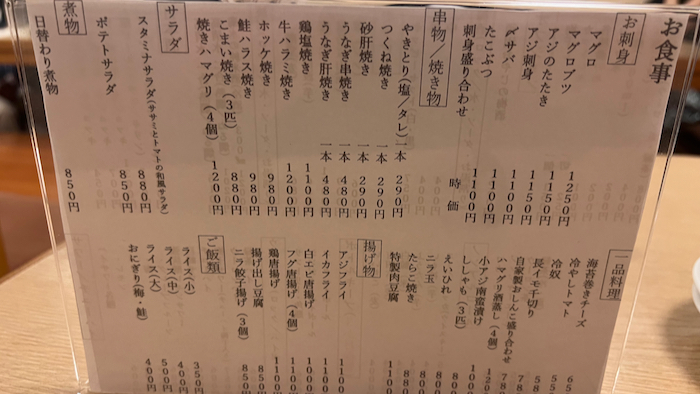 お食事
お刺身
マグロ
マグロブツ 1250円
アジのたたき 1150円
アジ刺身 1150円
〆サバ 1100円
たこぶつ 1100円
刺身盛り合わせ 時価
串物／焼き物
やきとり（塩／タレ）一本 290円
つくね焼き 一本 290円
砂肝焼き 一本 290円
うなぎ串焼き 一本 480円
うなぎ肝焼き 一本 480円
鶏塩焼き 1100円
牛ハラミ焼き 1200円
ホッケ焼き 980円
鮭ハラス焼き 980円
こまい焼き（3匹） 880円
焼きハマグリ（4個） 1200円
サラダ
スタミナサラダ（ササミとトマトの和風サラダ） 880円
ポテトサラダ 850円
煮物
日替わり煮物 850円
一品料理
海苔巻きチーズ
冷やしトマト
冷奴
長イモ千切り
自家製おしんこ盛り合わせ
ハマグリ酒蒸し（4個）
小アジ南蛮漬け
ししゃも（3匹）
えいひれ
ニラ玉
たらこ焼き
特製肉豆腐 1100
揚げ物
アジフライ 1100
イカフライ 1100
白エビ唐揚げ 1000
フグ唐揚げ（4個） 1100
鶏唐揚げ 1100
揚げ出し豆腐 850
ニラ餃子揚げ（3個） 850
ご飯類
ライス（小） 350
ライス（中） 400円
ライス（大） 500円
おにぎり（梅・鮭） 400円